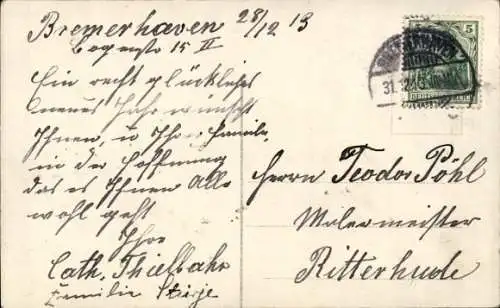 Bremerhaven 28/12 13
Bogenstr 15 II
Ein recht glückliches
neues Jahr wünscht
Ihnen, u Ihre Familie
in der Hoffnung
das es Ihnen Alle
wohl geht
Ihre
Cath. Thielbahr
Familie
Herrn Teodor Pöhl
Malermeister
Ritterhude
5
BREMERHAVEN
31.12